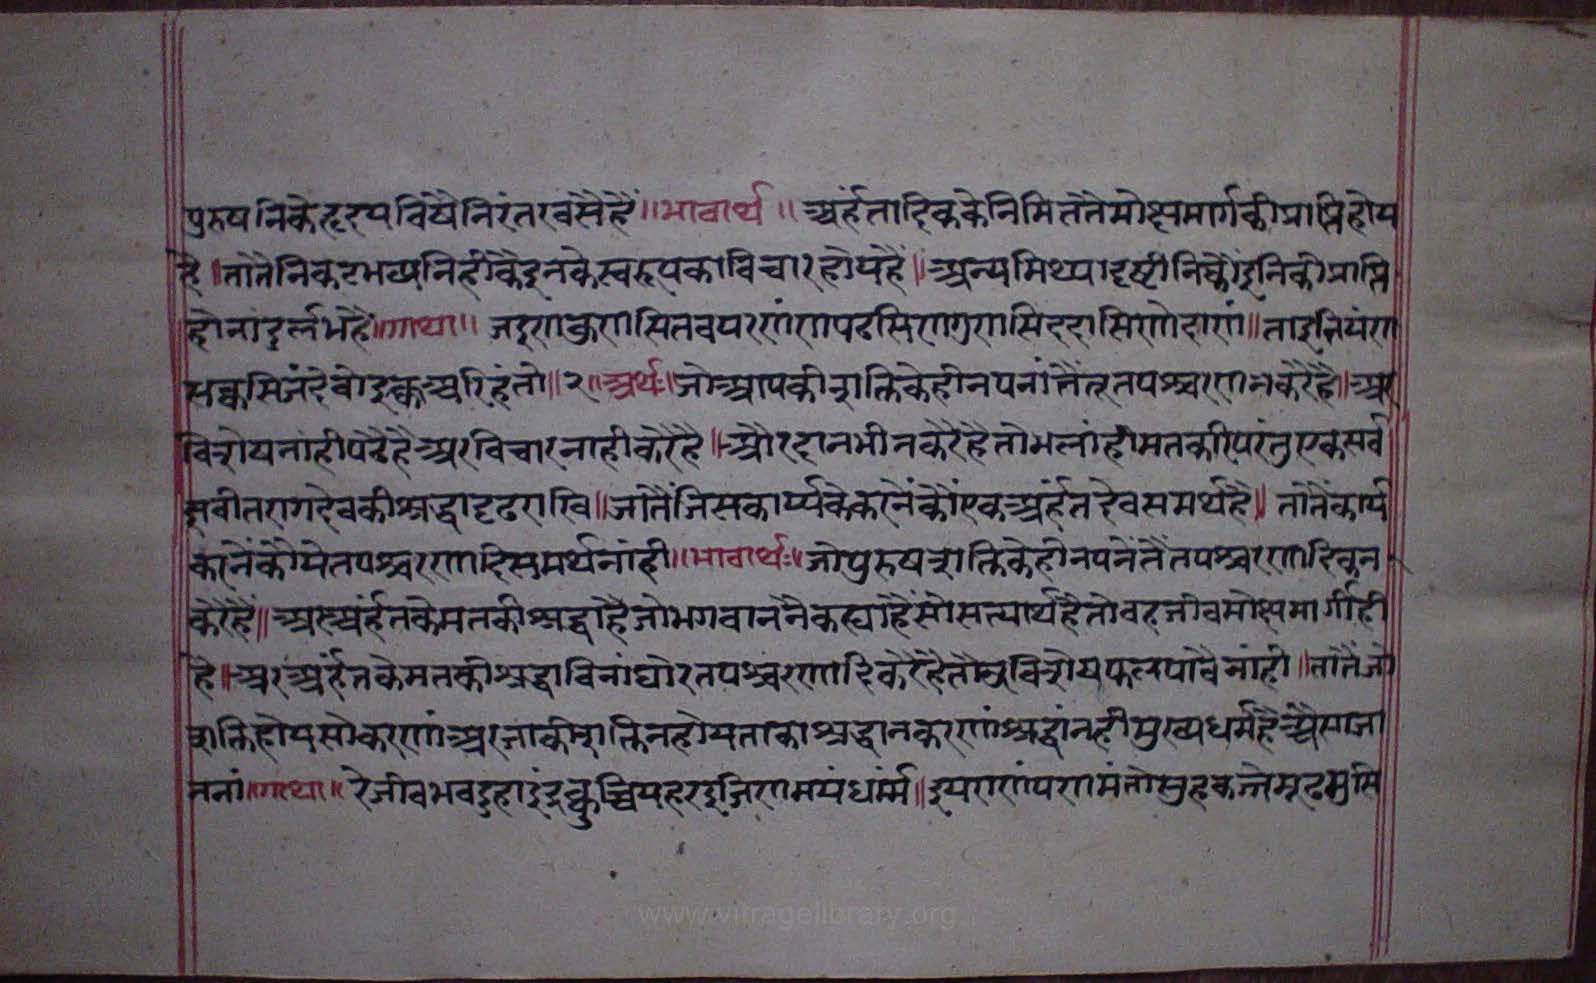 पुरुषनिके हृदयविषै निरंतर वसै हैं ॥ भावार्थ ॥ अर्हंतादिकके निमिततै मोक्षमार्गकी प्राप्ति होय
है ॥ तातै निकटभव्यनिहीकै इनके स्वरूपका विचार होय है ॥ अन्य मिथ्यादृष्टीनिकौं इनिकी प्राप्ति
होनां दुर्लभ है ॥ गाथा ॥ जइ ण कुणसि तवयरणं ण पढसि ण गुणसि ददासि णो दाणं ॥ ता इत्तियं ण
सक्कसि जं देवो इक्क अरिहंतो ॥ २ ॥ अर्थः ॥ जो आपकी शक्तिके हीनपनांतैं तू तपश्चरण न करै है ॥ अर
विशेष नांही पढै है अर विचार नाही करै है ॥ और दान भी न करै है तो भलां ही मत करि परंतु एक सर्व
ज्ञ वीतराग देवकी श्रद्धा दृढ राखि ॥ जातैं जिस कार्य्यके करनेंकौं एक अर्हंत देव समर्थ है ॥ तातैं कार्य
करनेंकौ ये तपश्चरणादि समर्थ नांही ॥ भावार्थः ॥ जो पुरुष शक्तिके हीनपनेंतैं तपश्चरणादिक न
करै हैं ॥ अर अर्हंतके मतकी श्रद्धा है जो भगवाननै कह्या है सो सत्यार्थ है तो वह जीव मोक्षमार्गी ही
है ॥ अर अर्हंतके मतकी श्रद्धा विनां घोर तपश्चरणादि करै है तौऊ विशेष फल पावै नांही ॥ तातैं जो
शक्ति होय सो करणां अर जाकी शक्ति न होय ताका श्रद्धान करणां श्रद्धांन ही मुख्य धर्म है अैसा जा
ननां ॥ गाथा ॥ रे जीव भव दुहाइं इक्कु च्चिय हरइ जिणमयं धर्म्मं ॥ इयराणं पणमंतो सुह कज्जे मूढ मुसि
www.vitragelibrary.org